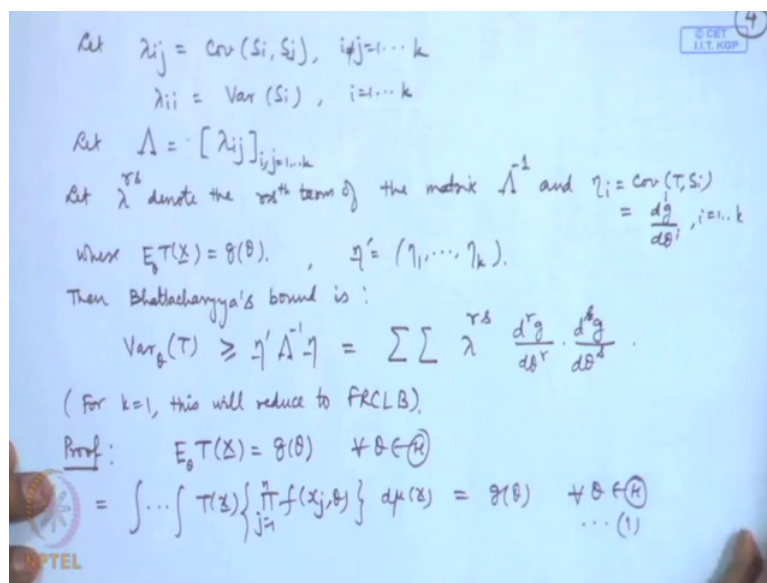 4
© CET
I.I.T. KGP
Let λij = Cov (Si, Sj), i≠j=1...k
λii = Var (Si), i=1...k
Let Λ = [λij] i,j=1...k
Let λ^rs denote the rsth term of the matrix Λ^-1 and ηi = Cov (T, Si)
= d^i g / dθ^i, i=1..k
where E_θ T(X) = g(θ). , η' = (η1, ..., ηk).
Then Bhattacharyya's bound is :
Var_θ (T) ≥ η' Λ^-1 η = ΣΣ λ^rs d^r g / dθ^r . d^s g / dθ^s .
(For k=1, this will reduce to FRCLB).
Proof : E_θ T(X) = g(θ) ∀ θ ∈ Ⓗ
= ∫...∫ T(x) { ∏_{j=1}^n f(xj, θ) } dμ(x) = g(θ) ∀ θ ∈ Ⓗ
... (1)
NPTEL